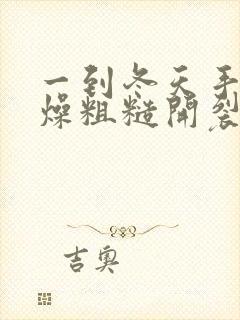 一到冬天手
燥粗糙開裂
吉奧